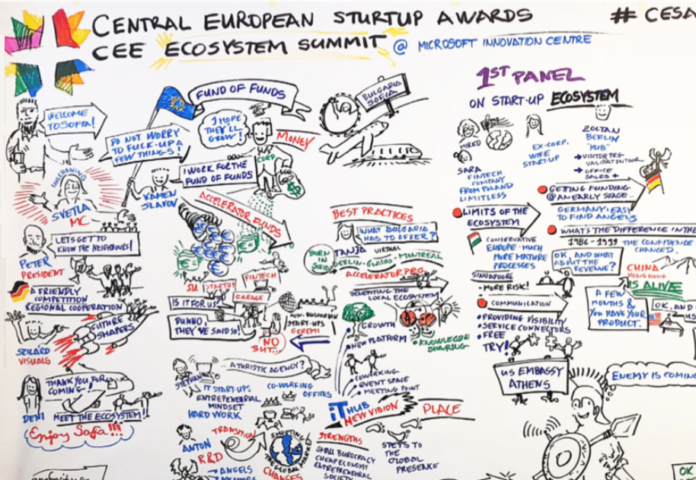 CENTRAL EUROPEAN STURTUP AWARDS
# CESA
CEE ECOSYSTEM SUMMIT @ MICROSOFT INNOVATION CENTRE
WELCOME
TO SOFIA!
SVETLA
MC
LET'S GET TO
KNOW THE NEIGHBOURS!
PETER
PRESIDENT
A FRIENDLY
COMPETITION
REGIONAL COOPERATION
FUTURE
SHAPERS
VISUALS
THANK YOU FOR
COMING!
DENI
MEET THE ECOSYSTEM!!
Enjoy Sofia!!!
FUND OF FUNDS
DO NOT WORRY
TO FUCK-UP A
FEW THINGS!
I HOPE
THEY'LL
GROW!
MONEY
I WORK FOR THE
FUND OF FUNDS
KAMEN
SLAVOV
ACCELERATOR FUNDS
FINTECH
GARAGE
IS IT FOR US?
THEY'VE SAID SO!
NO
BUT..!
START-UPS
A TURISTIC AGENCY?
IT START-UPS
ENTREPRENEURIAL
MINDSET
HARD WORK
CO-WORKING
OFFICES
TRANSITION
ANTON
R&D
ANGELS
CHANGES
BULGARIA
SOFIA
BEST PRACTICES
WHAT BULGARIA
HAS TO OFFER?
TANJA
VIRTUAL
BERLIN-
-MONTREAL
ACCELERATOR PRG.
THE
LOCAL ECOSYSTEM
GROWTH
NEW PLATFORM
KNOWLEDGE
SHARING
COWORKING
EVENT SPACE
MEETING POINT
IT HUB
NEW VISION
PLACE
STRENGTHS
SMALL BUROCRACY
CHEAP ECONOMY
ENTREPRENEURIAL
SOCIETY
STEPS TO
THE
GLOBAL
PRESENCE
1ST PANEL
ON START-UP ECOSYSTEM
SARA
FINTECH
COMPANY
FROM POLAND
LIMITLESS
EX-CORP.
WIFE
START-UP
ZOLTAN
BERLIN
"HUB"
OFFICE
SALES +
GETTING FUNDING
@ AN EARLY STAGE
GERMANY - EASY
TO FIND ANGELS
LIMITS OF THE
ECOSYSTEM
WHAT'S THE DIFFERENCE IN THE
THE CONFIDENCE
CHANGED.
CONSERVATIVE
EUROPE - MUCH
MORE MATURE
PROCESSES
SINGAPORE
- MORE RISK!
OK, AND WHAT
ABOUT THE
REVENUE?
CHINA
IS ALIVE
A FEW
MONTHS &
YOU HAVE YOUR
PRODUCT.
OK, AND
COMMUNICATION
PROVIDING VISIBILITY
SERVICE CONNECTORS
FREE
TRY!
US EMBASSY
ATHENS
ENEMY IS COMIN
OK